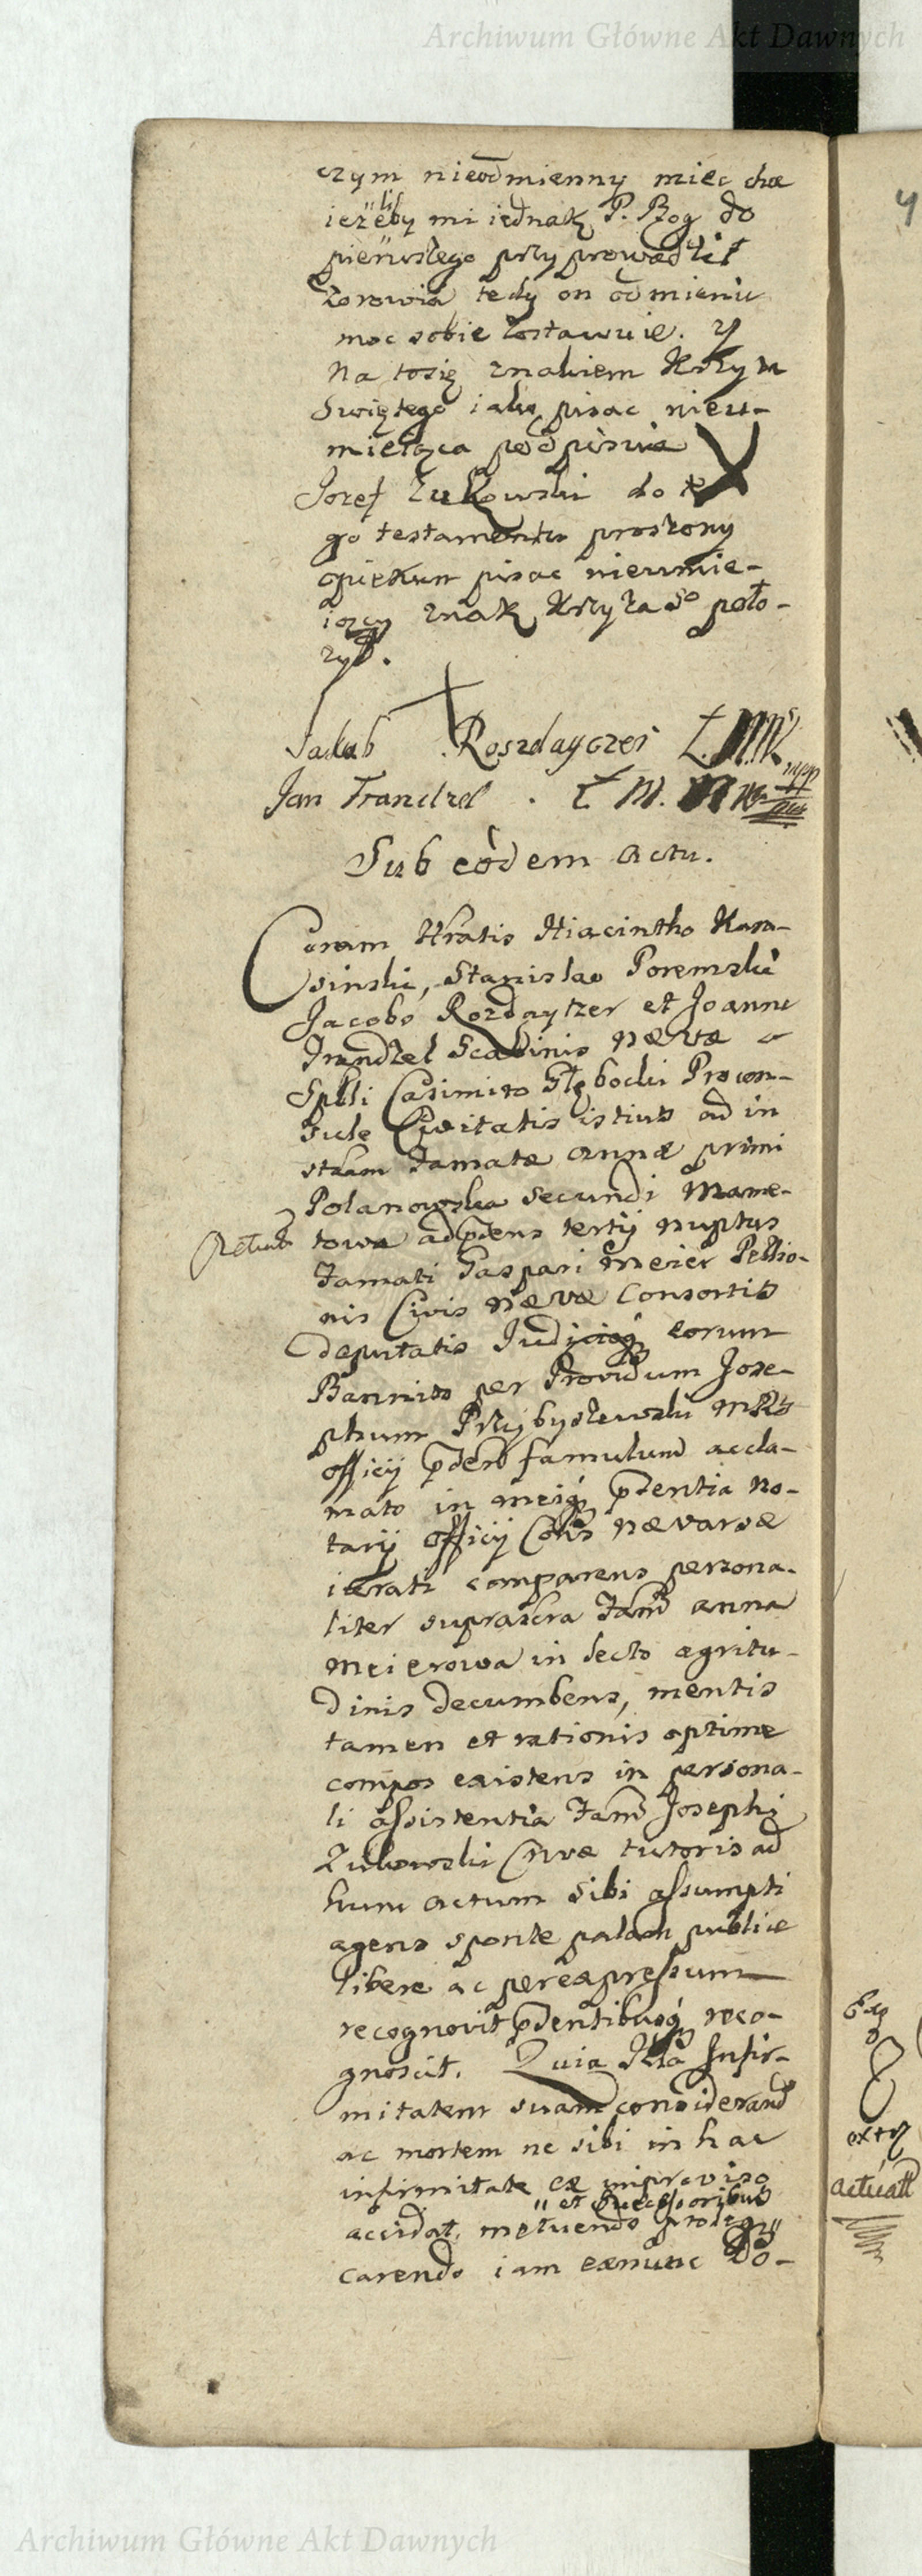 Archiwum Główne Akt Dawnych
czym nieodmienny miec chce
ieżeliby mi iednak P. Bog do
pierwszego przyprowadził
Zdrowia tedy on odmienie
moc sobie zostawuię. y
Na tosię znakiem Krzyza
Swiętego iako pisac nieu-
mieiąca podpisuie
Jozef Zukowski do te
go testamentu proszony
opiekun pisac nieumie-
iący znak Krzyża So poło-
zył.
Jakub Roszdayczer
Jan Trandzel
Sub eodem actu.
Coram Hratis Hiacintho Kara-
sinski, Stanislao Poremski
Jacobo Rozdaytzer et Joanne
Trandzel Scabinis næ væ a
Spbli Casimiro Głębocki Procon-
sule Civitatis istius ad in
stam Famatæ Annæ primi
Polanowska secundi Mane-
towa adpdens tertij nuptus
Famati Gaspari Meier Pellio-
nis Civis næ væ Consortis
deputatis Judicioq eorum
Bannito per Providum Jose-
phum Przybyszewski
officij pdens famulum accla-
mato in meiq pdentia No-
tarij officij Cons næ varsæ
iurati comparens persona-
liter suprascra Fam Anna
Meierowa in lecto ægritu-
dinis decumbens, mentis
tamen et rationis optime
compos existens in persona-
li assistentia Fam Josephi
Zukowski Civæ tutoris ad
hunc actum sibi assumpti
agens sponte palam publice
libere ac per expressum
recognovit pdentibusq reco-
gnoscit. Quia Illa Infir-
mitatem suam considerand
ac mortem ne sibi in hac
infirmitate ex improviso
et successoribus
accidat, metuendo
carendo iam exnunc Bo-
actuatt
Archiwum Główne Akt Dawnych